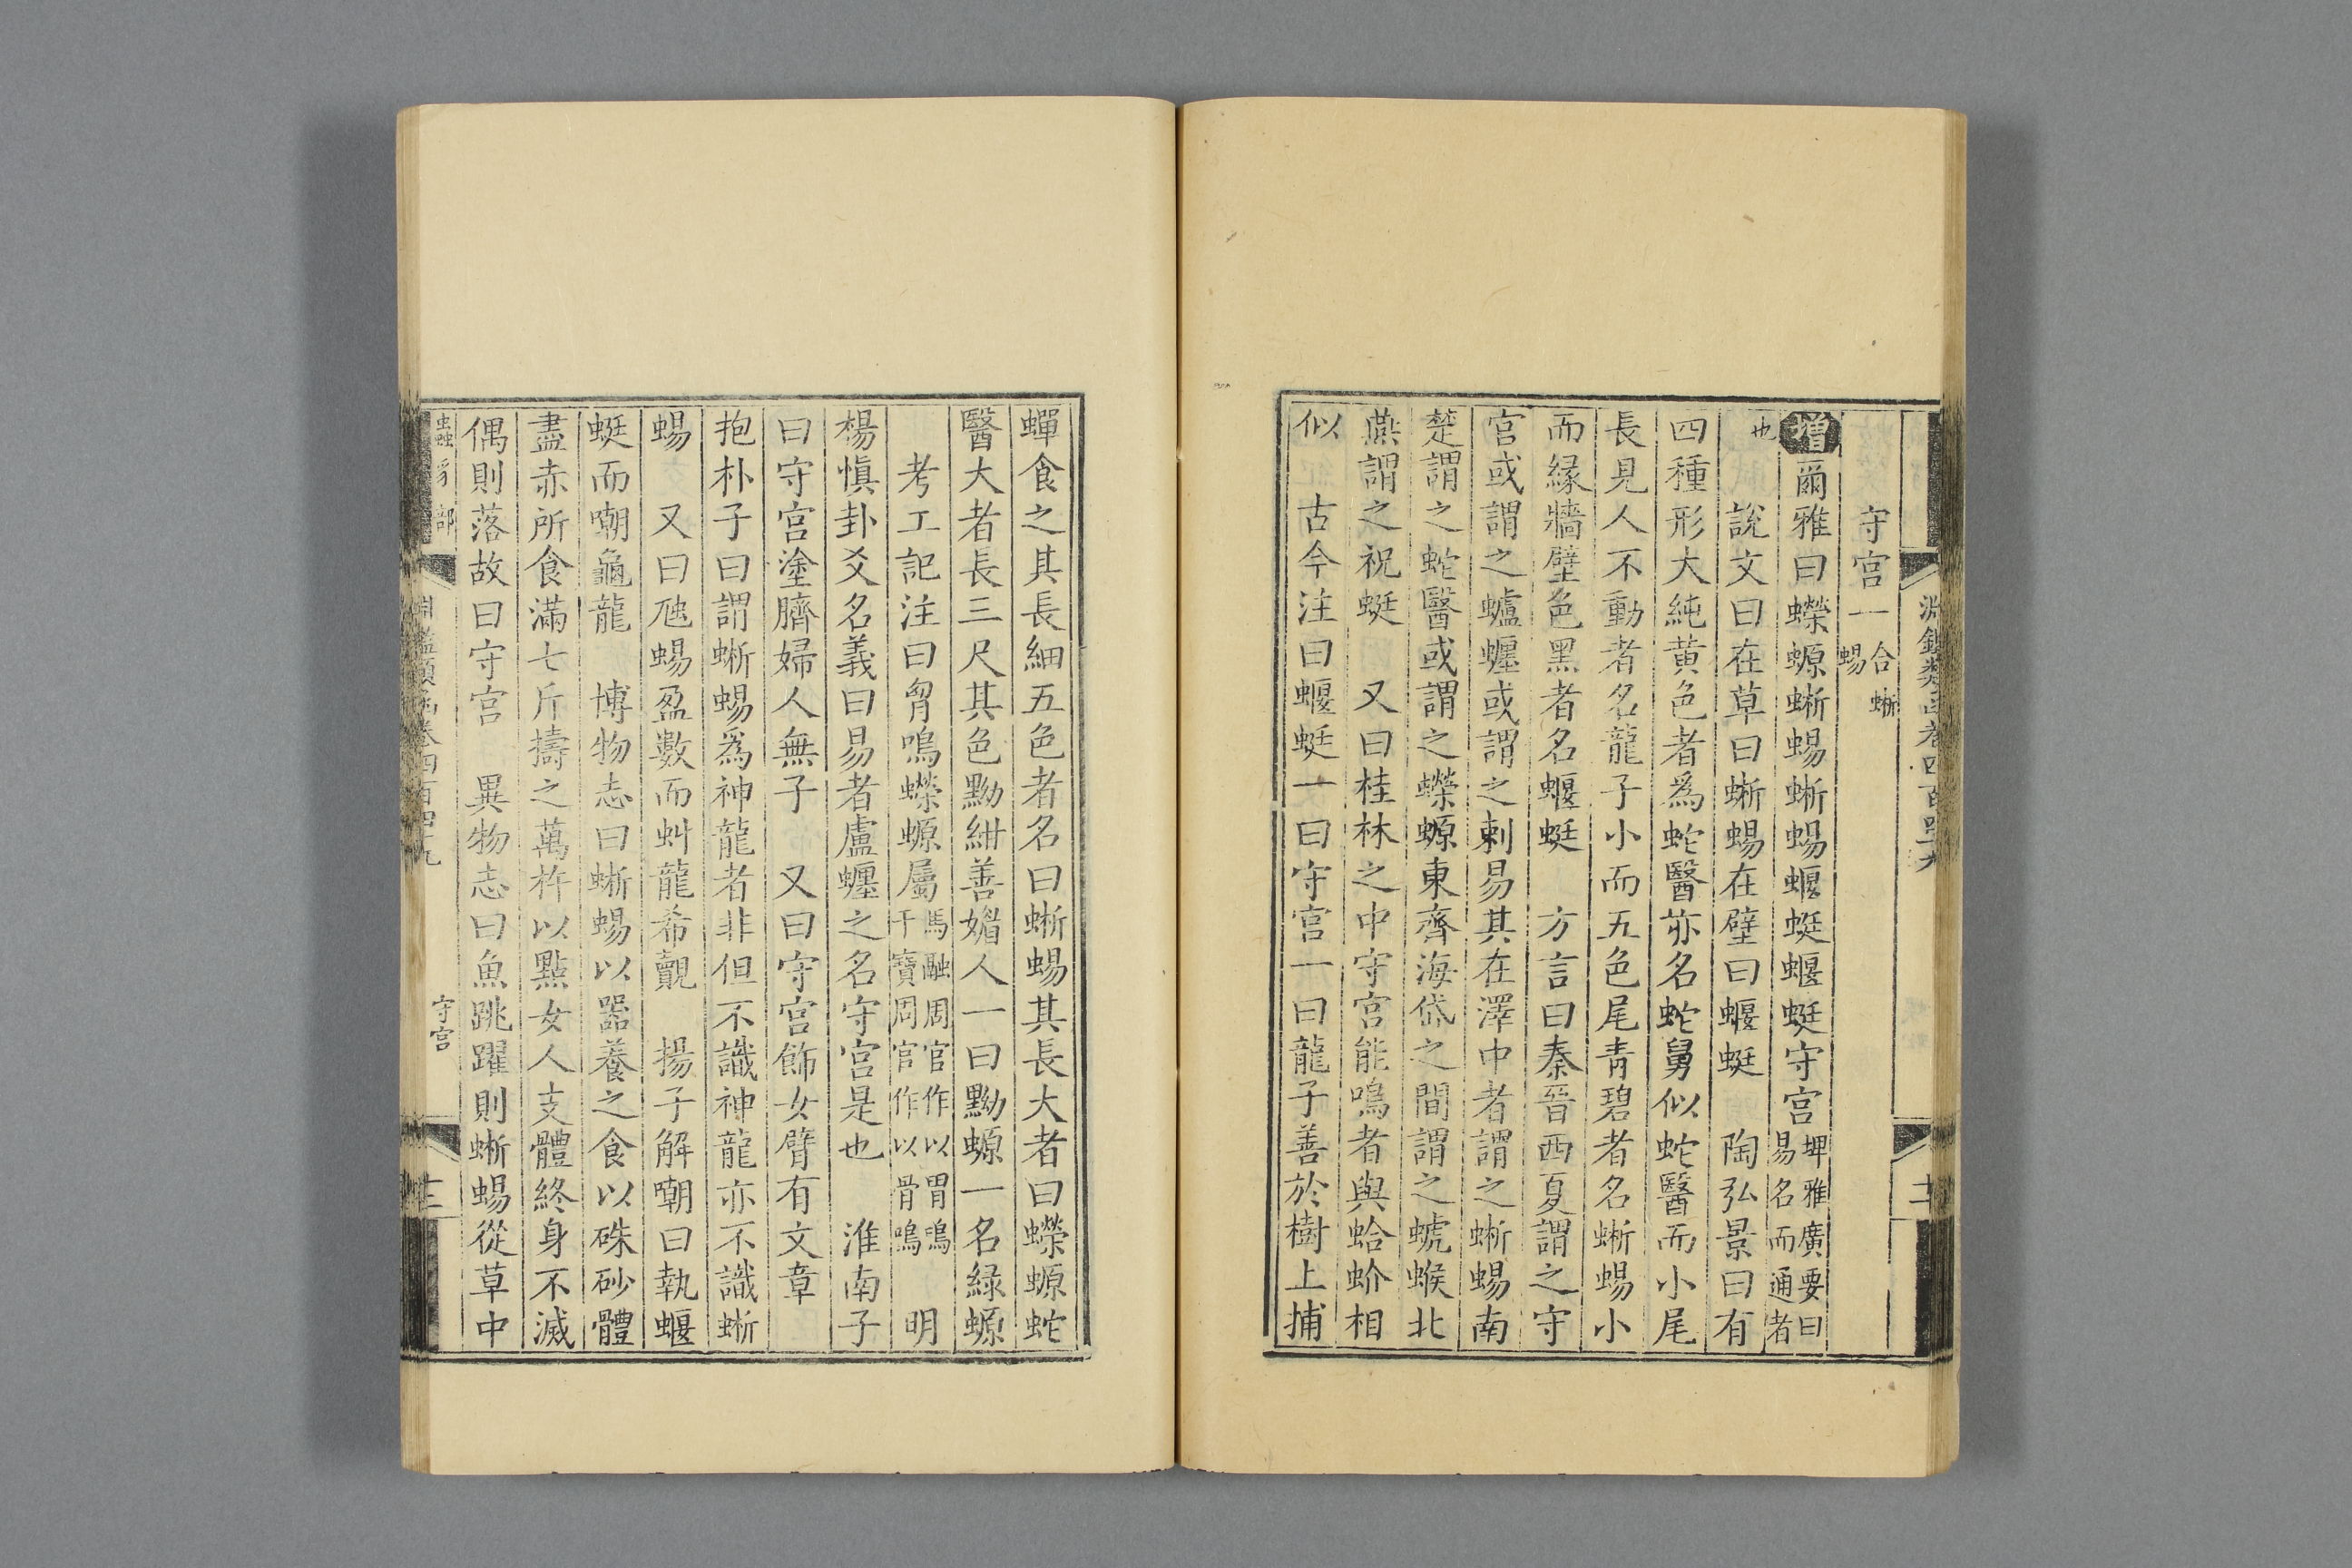 守宫一合蜥蜴
增爾雅曰蠑螈蜥蜴蜥蜴蝘蜓蝘蜓守宫埤雅廣要曰易名而通者
也 說文曰在草曰蜥蜴在壁曰蝘蜓 陶弘景曰有
四種形大純黄色者爲蛇醫亦名蛇舅似蛇醫而小尾
長見人不動者名龍子小而五色尾青碧者名蜥蜴小
而緣牆壁色黑者名蝘蜓 方言曰秦晉西夏謂之守
宫或謂之蠦𧓋或謂之刺易其在澤中者謂之蜥蜴南
楚謂之蛇醫或謂之蠑螈東齊海岱之間謂之螔䗔北
燕謂之祝蜓 又曰桂林之中守宫能鳴者與蛤蚧相
似 古今注曰蝘蜓一曰守宫一曰龍子善於樹上捕
蟬食之其長細五色者名曰蜥蜴其長大者曰蠑螈蛇
醫大者長三尺其色黝紺善媚人一曰黝螈一名綠螈
考工記注曰胷鳴蠑螈屬馬融周官作以胃鳴干寳周官作以骨鳴 明
楊愼卦爻名義曰易者盧𧓋之名守宫是也 淮南子
曰守宫塗臍婦人無子 又曰守宫飾女臂有文章
抱朴子曰謂蜥蜴爲神龍者非但不識神龍亦不識蜥
蜴 又曰虺蜴盈數而虯龍希覿 揚子解嘲曰執蝘
蜓而嘲龜龍 博物志曰蜥蜴以器養之食以硃砂體
盡赤所食滿七斤擣之萬杵以點女人支體終身不滅
偶則落故曰守宫 異物志曰魚跳躍則蜥蜴從草中
蟲豸部
淵鑑類函卷四百四十九
守宫